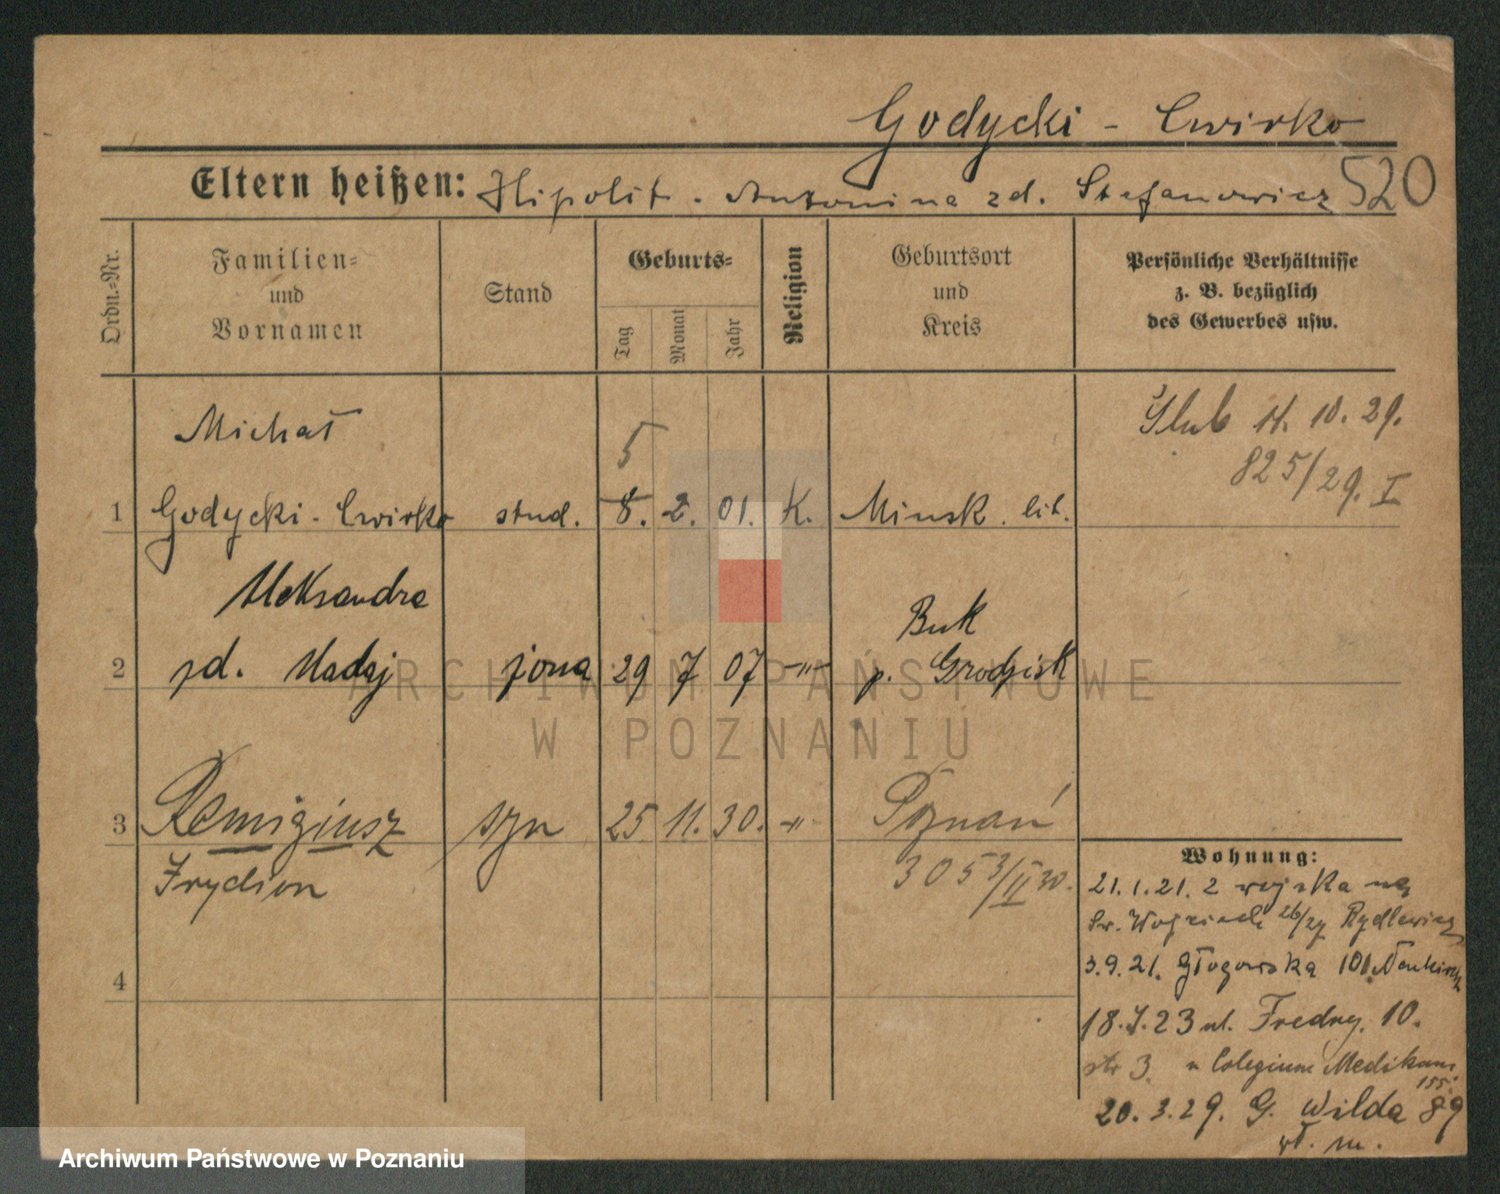 Godycki - Cwirko
Eltern heißen: Hipolit - Antonina zd. Stefanowicz 520
Ordn.-Nr.
Familien-
und
Vornamen
Stand
Geburts-
Tag
Monat
Jahr
Religion
Geburtsort
und
Kreis
Persönliche Verhältnisse
z. B. bezüglich
des Gewerbes usw.
Michał
5
Ślub 11. 10. 29.
825/29. I
1 Godycki - Cwirko stud. 8. 2. 01. K. Minsk lit.
Aleksandra
Buk
2 zd. Madaj żona 29 7 07 -"- p. Grodzisk
3 Remigiusz syn 25 11. 30. -"- Poznań
Irydion
3053/II 30.
4
Wohnung:
21.1.21. z wojska na
Św. Wojciech 26/27 Rydlewicz
3.9.21. Głogowska 101.
18.7.23 ul. Fredry. 10.
str 3. w Colegium Medikum
155.
20.3.29. G. Wilda 89
wł. m.
ARCHIWUM PAŃSTWOWE
W POZNANIU
Archiwum Państwowe w Poznaniu